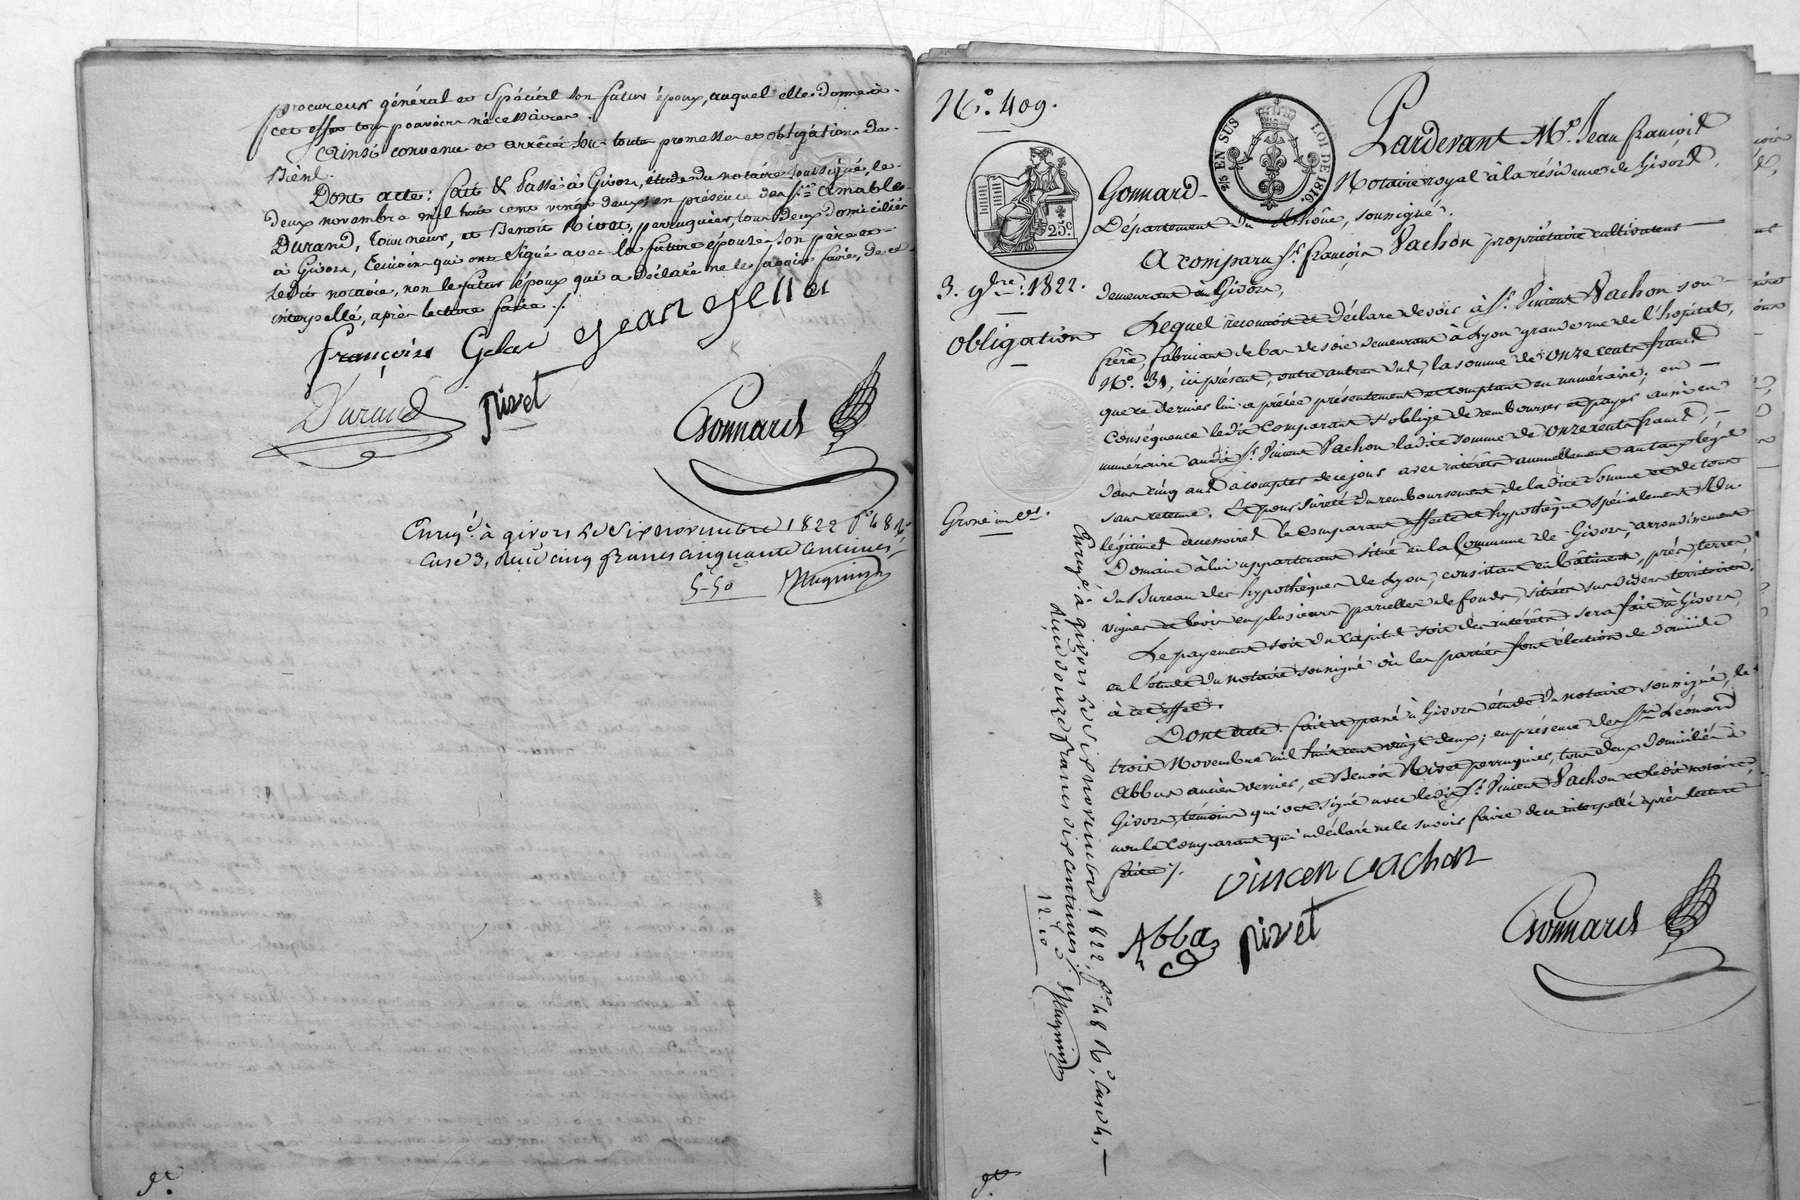 procureur général et spécial son futur époux, auquel elle donne à
cet effet tous pouvoirs nécessaires.
Ainsi convenu et arrêté sous toute promesse et obligation de
Biens.
Dont acte: fait & passé à Givors, étude du notaire soussigné, le
deux novembre mil huit cent vingt deux; en présence des Srs Amable
Durand, tourneur, et Benoit Rivet, perruquier, tous deux domiciliés
à Givors, témoins qui ont signé avec la future épouse son père et
ledit notaire, non le futur époux qui a déclaré ne le savoir faire, de ce
interpellé, après lecture faite ./.
françoise Gelas Jean
Durand Rivet
Gonnard
Enregé à givors le six novembre 1822 fo 48 Ro
case 3, reçu cinq francs cinquante centimes
5-50
No. 409.
25 EN SUS
LOI DE 1816.
25c
Pardevant Me. Jean françois
Gonnard Notaire royal à la résidence de Givors,
Département du Rhône, soussigné.
A comparu sr. françois Vachon propriétaire cultivateur
demeurant à Givors,
3. 9bre. 1822.
Obligation
Lequel reconnoit et déclare devoir à Sr. Vincent Vachon son
frère, fabricant de bas de soie demeurant à Lyon grande rue de l'hopital,
No. 31, ici présent, la somme de onze cents francs
que ce dernier lui a prêtée présentement et comptant en numéraire; en
conséquence ledit comparant s'oblige de rembourser et payer aussi en
numéraire audit Sr. Vincent Vachon ladite somme de onze cents francs,
dans cinq ans à compter de ce jour avec intérêts annuellement au taux légal
sans retenue. Et pour sûreté du remboursement de ladite somme et de tous
légitimes accessoires le comparant affecte et hypothèque spécialement un
Domaine à lui appartenant situé en la Commune de Givors, arrondissement
du Bureau des hypothèques de Lyon, consistant en bâtiments, prés, terres
vignes et bois en plusieurs parcelles de fonds, situées sur divers territoires.
Le payement soit du capital soit des intérêts sera fait à Givors,
en l'étude du notaire soussigné où les parties font élection de domicile
à cet effet.
Dont acte: fait et passé à Givors étude du notaire soussigné, le
trois Novembre mil huit cent vingt deux; en présence des Srs Léonard
Abbat ancien verrier, et Benoit Rivet perruquier, tous deux domiciliés à
Givors, témoins qui ont signé avec ledit Sr. Vincent Vachon et ledit notaire,
non le comparant qui a déclaré ne le savoir faire de ce interpellé après lecture
faite ./.
vincen vachon
Abba Rivet
Gonnard
Enregé à givors le six novembre 1822, fo. 48 Ro, case 4,
reçu douze francs dix centimes.
12-10